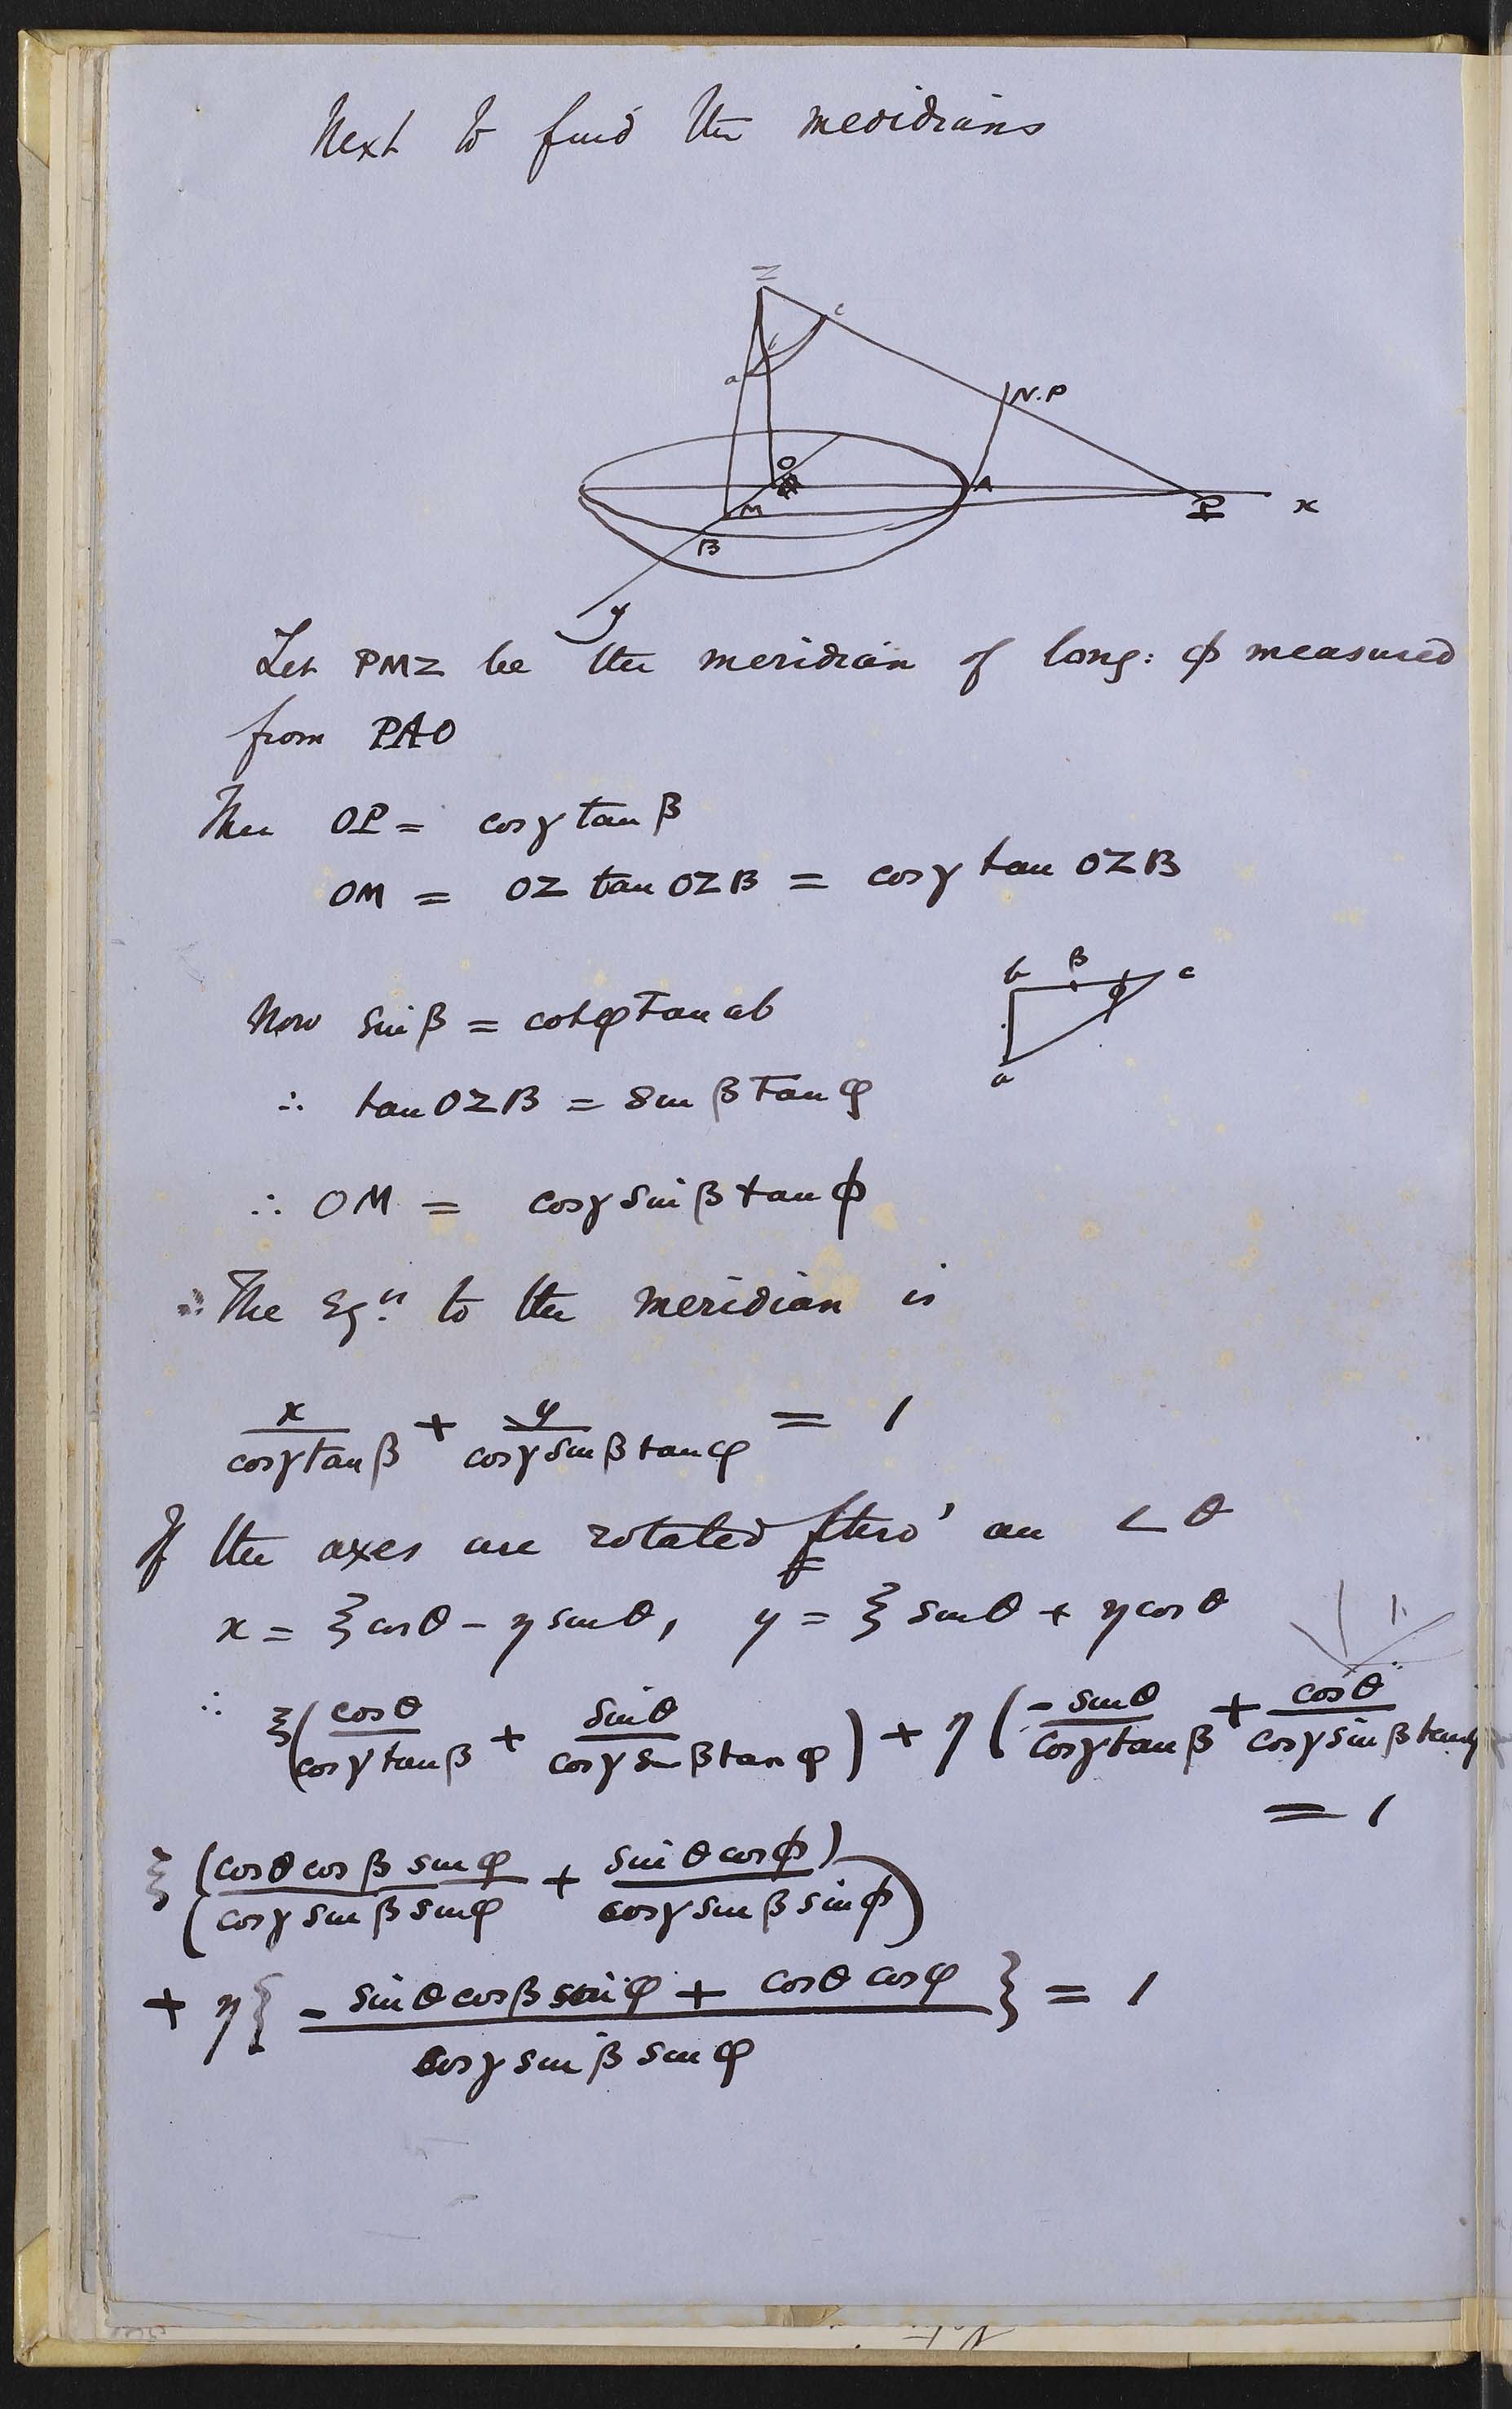 Next to find the meridians
Z
c
b
a
N.P
O
A
M
P
x
B
y
Let PMZ be the meridian of long: φ measured
from PAO
Then OP = cosγ tan β
OM = OZ tan OZB = cosγ tan OZB
b β c
φ
a
Now sin β = cot φ tan ab
∴ tan OZB = sin β tan φ
∴ OM = cosγ sin β tan φ
∴ The Eqⁿ to the meridian is
x/(cosγ tan β) + y/(cosγ sin β tan φ) = 1
If the axes are rotated thro' an ∠ θ
x = ξ cos θ − η sin θ, y = ξ sin θ + η cos θ
∴ ξ(cos θ/(cosγ tan β) + sin θ/(cosγ sin β tan φ)) + η(−sin θ/(cosγ tan β) + cos θ/(cosγ sin β tan φ))
= 1
ξ(cos θ cos β sin φ/(cosγ sin β sin φ) + sin θ cos φ/(cosγ sin β sin φ))
+ η{(− sin θ cos β sin φ + cos θ cos φ)/(cosγ sin β sin φ)} = 1